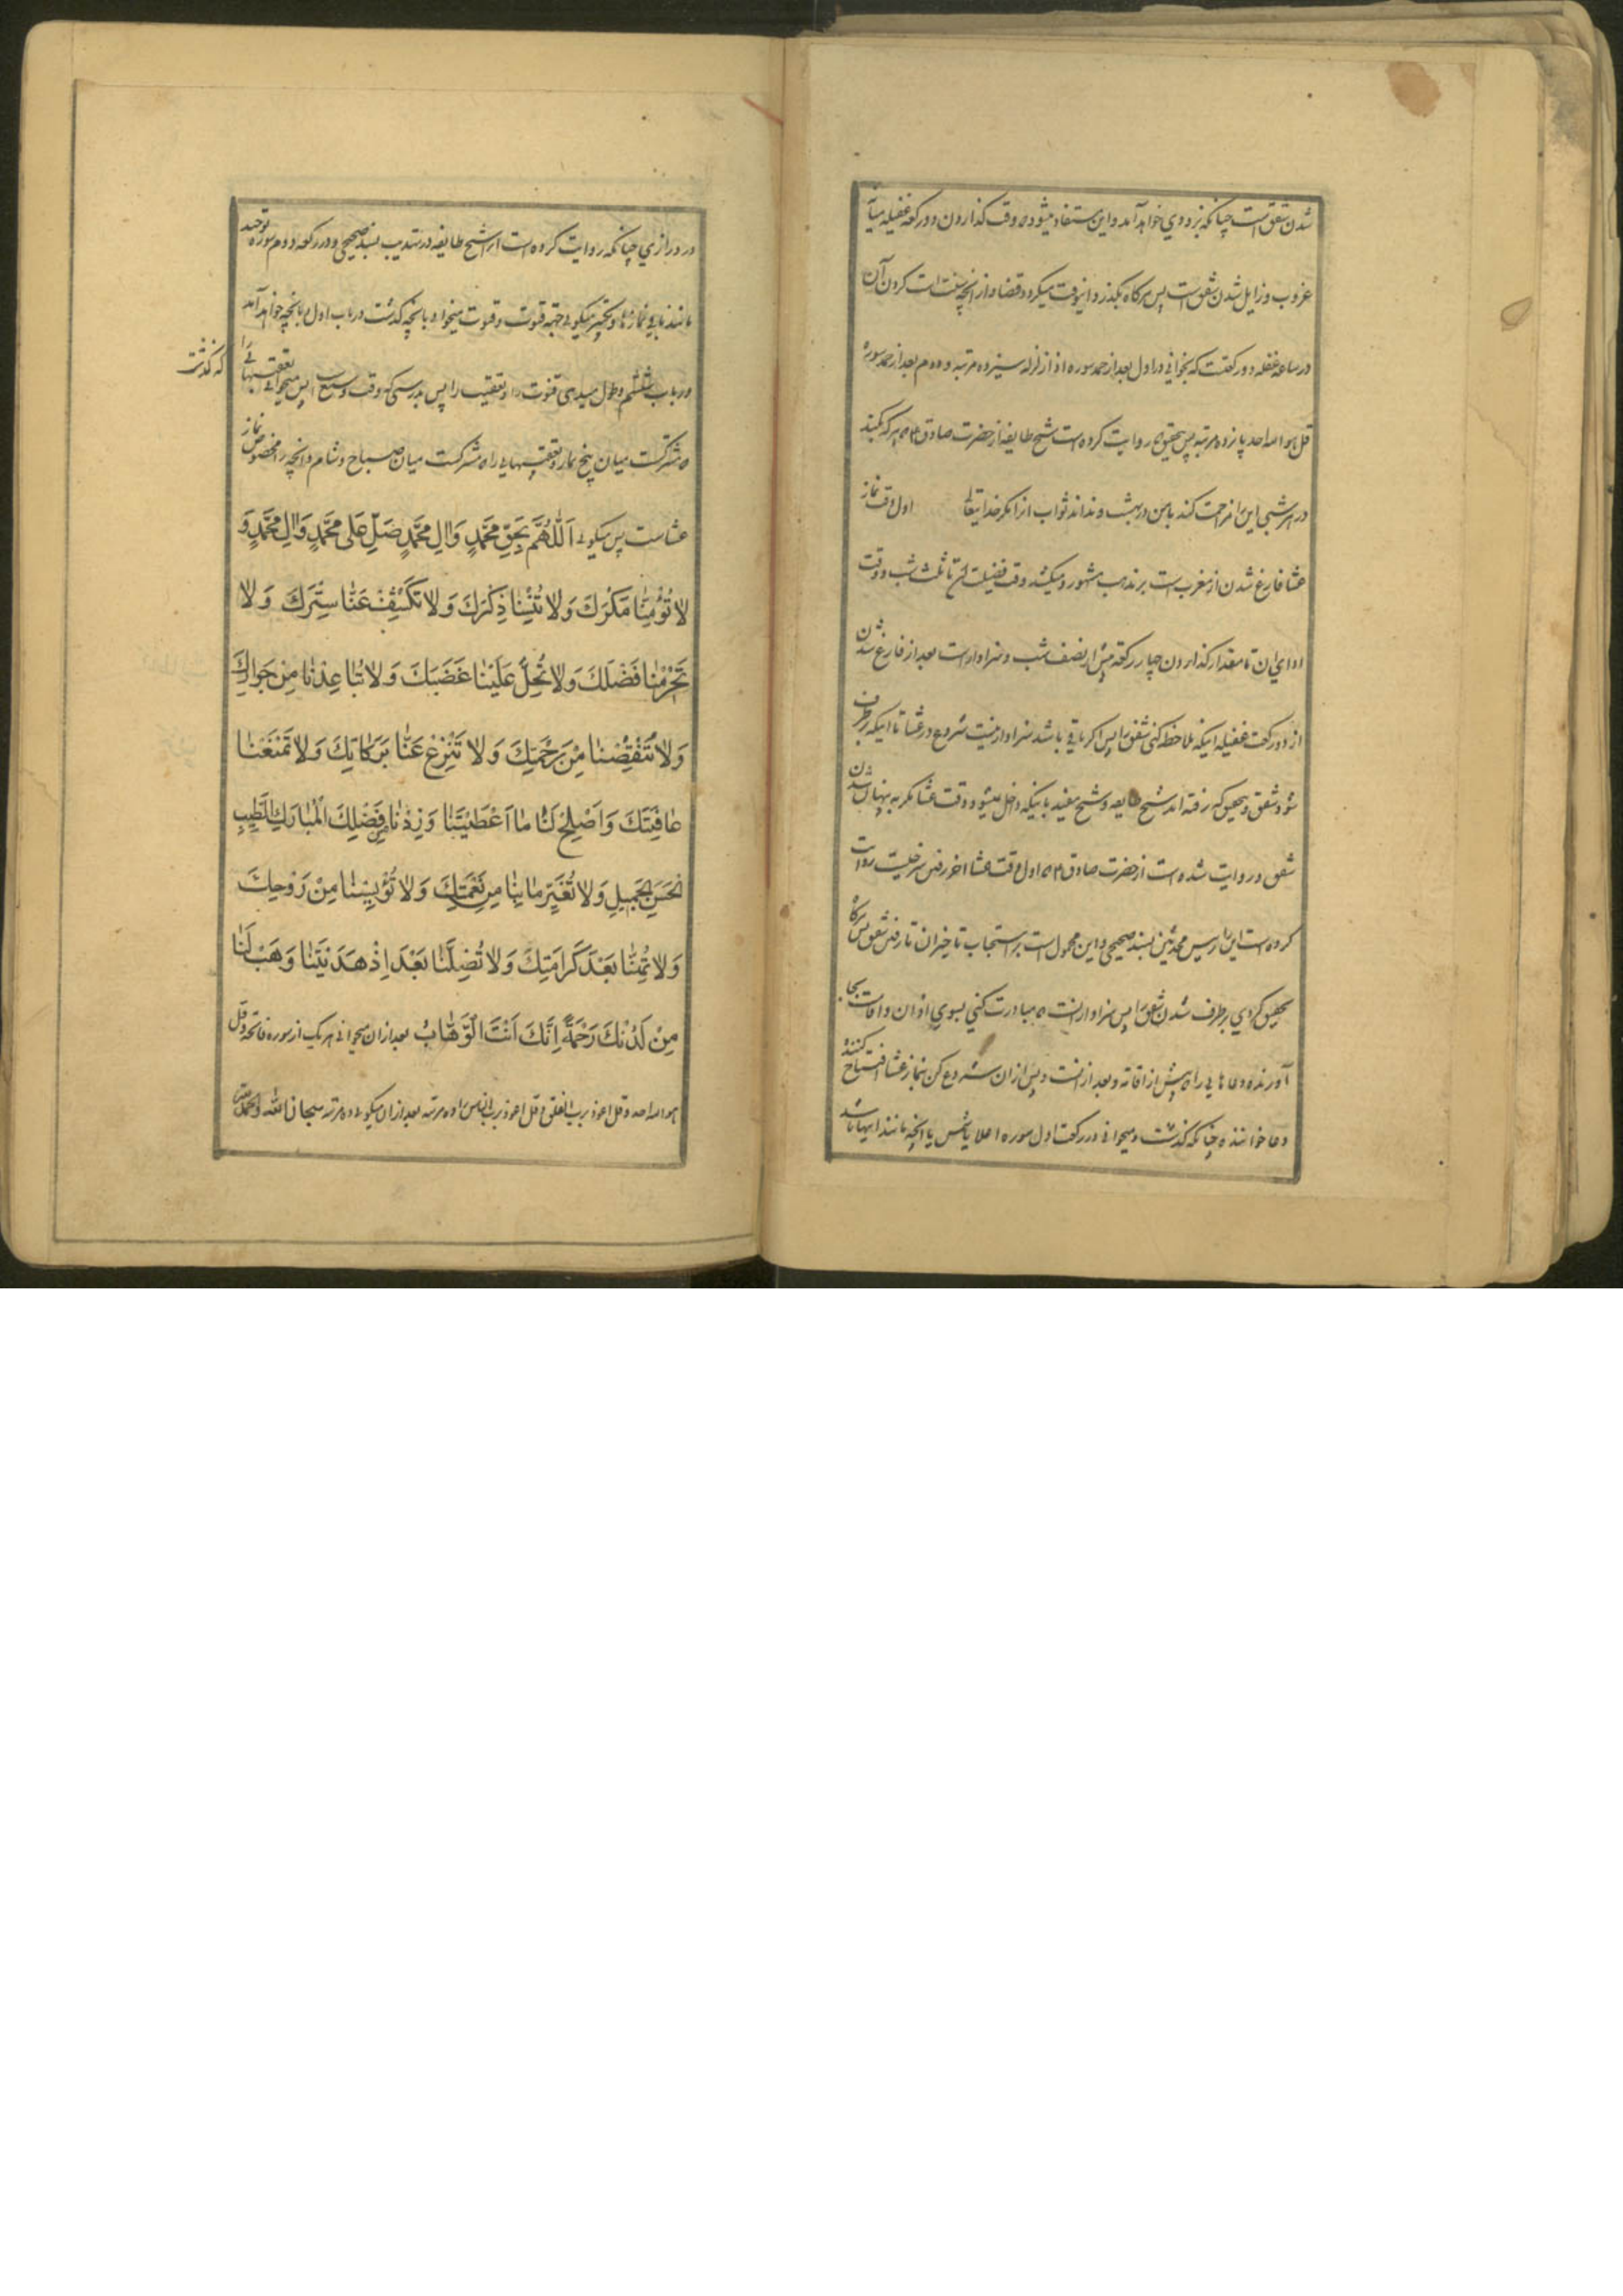 شدن شفق است چنانکه بزودی خواهد آمد و این مستفاد میشود که وقت گذاردن دو رکعه غفیله میان
غروب و زایل شدن شفق است پس هرگاه بگذرد این وقت میگردد قضا و از آنچه سنت است کردن آن
در ساعه غفله دو رکعتست که بخوانی در اول بعد از حمد سوره اذا زلزله سیزده مرتبه و دوم بعد از حمد سوره
قل هو الله احد پانزده مرتبه پس بتحقیق که روایت کرده است شیخ طایفه از حضرت صادق که هر که بکند
در هر شبی این را مزاحمت کند با من در بهشت و نداند ثواب آنرا مگر خدایتعالی اول وقت نماز
عشا فارغ شدن از مغرب است بر مذهب مشهور و میکشد وقت فضیلت تا ثلث شب و وقت
ادای آن تا مقدار گذاردن چهار رکعه پیش از نصف شب و سزاوار است بعد از فارغ شدن
از دو رکعت غفیله اینکه ملاحظه کنی شفق را پس اگر باقی باشد سزاوار نیست شروع در عشا تا اینکه برطرف
شود شفق و بتحقیق که رفته اند شیخ طایفه و شیخ مفید باینکه داخل نمیشود وقت عشا مگر به پنهان شدن
شفق و روایت شده است از حضرت صادق که اول وقت عشا آخر رفتن سرخیست روایت
کرده است این را رییس محدثین بسند صحیحی و این محمول است بر استحباب تاخیر آن تا رفتن شفق پس هرگاه
تحقیق کردی برطرف شدن شفق را پس سزاوار آنست که مبادرت کنی بسوی اذان و اقامت بجا
آورنده دعاهایی را که پیش از اقامه و بعد از آنست و پس از آن شروع کن بنماز عشا افتتاح کننده
دعا خواننده چنانکه گذشت و میخوانی در رکعت اول سوره اعلا یا شمس یا آنچه مانند اینها باشد
در درازی چنانکه روایت کرده است آنرا شیخ طایفه در تهذیب بسند صحیحی و در رکعه دوم سوره توحید
مانند باقی نمازها و تکبیر میگویی جهه قنوت و قنوت میخوانی بآنچه گذشت در باب اول یا بآنچه خواهد آمد
در باب ششم و طول میدهی قنوت را و تعقیب را پس بدرستی که وقت وسیع است پس میخوانی تعقیبهایی را
که گذشت
که مشترکست میان پنج نماز و تعقیبهایی را که مشترکست میان صباح و شام و آنچه را مخصوص نماز
عشاست پس میگویی اَللّٰهُمَّ بِحَقِّ مُحَمَّدٍ وَاٰلِ مُحَمَّدٍ صَلِّ عَلٰی مُحَمَّدٍ وَاٰلِ مُحَمَّدٍ وَ
لاٰ تُؤْمِنّٰا مَكْرَكَ وَلاٰ تُنْسِنٰا ذِكْرَكَ وَلاٰ تَكْشِفْ عَنّٰا سِتْرَكَ وَلاٰ
تَحْرِمْنٰا فَضْلَكَ وَلاٰ تُحِلَّ عَلَيْنٰا غَضَبَكَ وَلاٰ تُبٰاعِدْنٰا مِنْ جَوٰارِكَ
وَلاٰ تَنْقُصْنٰا مِنْ رَحْمَتِكَ وَلاٰ تَنْزِعْ عَنّٰا بَرَكٰاتِكَ وَلاٰ تَمْنَعْنٰا
عٰافِيَتَكَ وَاَصْلِحْ لَنٰا مٰا اَعْطَيْتَنٰا وَزِدْنٰا مِنْ فَضْلِكَ الْمُبٰارَكِ الطَّيِّبِ
الْحَسَنِ الْجَمِيلِ وَلاٰ تُغَيِّرْ مٰا بِنٰا مِنْ نِعْمَتِكَ وَلاٰ تُؤْيِسْنٰا مِنْ رَوْحِكَ
وَلاٰ تُهِنّٰا بَعْدَ كَرٰامَتِكَ وَلاٰ تُضِلَّنٰا بَعْدَ اِذْ هَدَيْتَنٰا وَهَبْ لَنٰا
مِنْ لَدُنْكَ رَحْمَةً اِنَّكَ اَنْتَ الْوَهّٰابُ بعد از آن میخوانی هر یک از سوره فاتحه و قل
هو الله احد و قل اعوذ برب الفلق و قل اعوذ برب الناس را ده مرتبه بعد از آن میگویی ده مرتبه سبحان الله والحمد لله